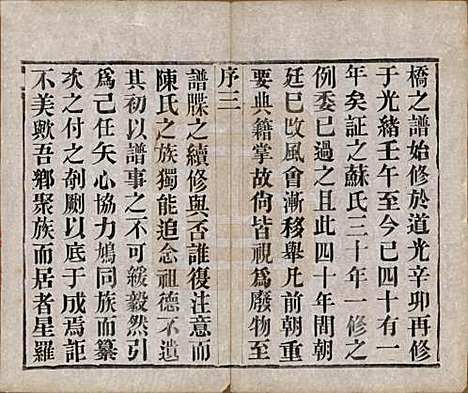 橋之譜始修於道光辛卯再修
于光緒壬午至今已四十有一
年矣証之蘇氏三十年一修之
例委已過之且此四十年間朝
廷已改風會漸移舉凡前朝重
要典籍掌故尙皆視爲廢物至
序三
譜牒之續修與否誰復注意而
陳氏之族獨能追念祖德不遺
其初以譜事之不可緩毅然引
爲己任矢心協力鳩同族而纂
次之付之剞劂以底于成焉詎
不美歟吾鄉聚族而居者星羅